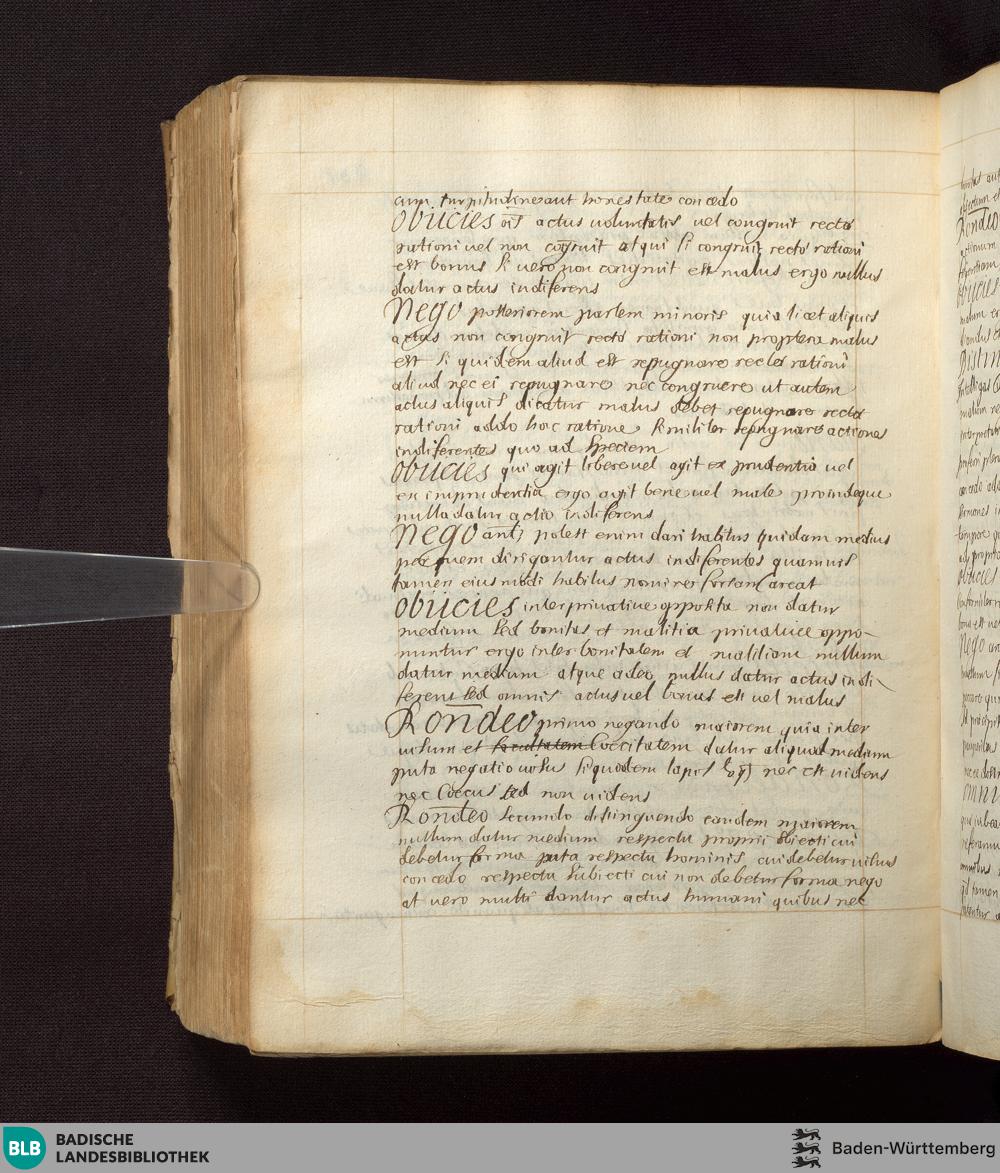 cum turpitudine aut honestate concedo
Obiicies oīs actus uoluntatis uel congruit recta
rationi uel non cogruit atqui si congruit recta rationi
est bonus si uero non congruit est malus ergo nullus
datur actus indiferens
Nego posteriorem partem minoris quia licet aliquis
actus non congruit recta rationi non proptera malus
est si quidem aliud est repugnare recta rationi
aliud nec ei repugnare nec congruere ut autem
actus aliquis dicatur malus debet repugnare recta
rationi addo hac ratione similiter repugnare actiones
indiferentes quo ad speciem
Obiicies qui agit libere uel agit ex prudentia uel
ex imprudentia ergo agit bene uel male proindeque
nulla datur actio indiferens
Nego ant; potest enim dari habitus quidam medius
per quem dirigantur actus indiferentes quamuis
tamen eiusmodi habitus nomine forsan careat
Obiicies inter priuatiue opposita non datur
medium sed bonitas et malitia priuatiue oppo-
nuntur ergo inter bonitatem et malitiam nullum
datur medium atque adeo nullus datur actus indi-
ferens sed omnis actus uel bonus est uel malus
Rondeo primo negando maiorem quia inter
uisum et facultatem Coecitatem datur aliquod medium
puta negatio uisus siquidem lapis nec est uidens
nec Coecus sed non uidens
Rondeo secundo distinguendo eandem maiorem
nullum datur medium respectu proprii subiecti cui
debetur forma puta respectu hominis cui debetur uisus
concedo respectu subiecti cui non debetur forma nego
at uero multi dantur actus humani quibus nec
Rondeo
obiicies
obiicies
Nego
BLB BADISCHE
LANDESBIBLIOTHEK
Baden-Württemberg